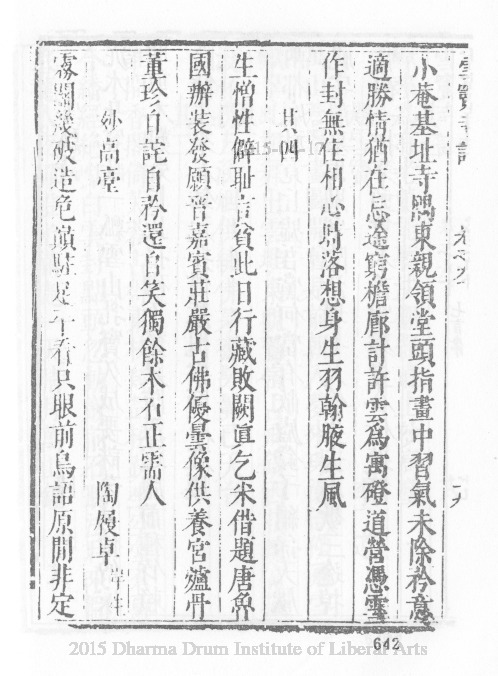 雪竇寺誌
小菴基址寺隅東親領堂頭指畫中習氣未除矜意
適勝情猶在忘途窮檐廊計許雲為寓磴道營憑雪
作封無住相心時落想身生羽翰腋生風
其四
生憎性僻耻言貧此日行藏敗闕真乞米借題唐魯
國辦裝發願晉嘉賓莊嚴古佛優曇像供養宮爐骨
董珍自詫自矜還自笑獨餘木石正需人
妙高臺
陶履卓
霧關幾破造危巔駐足千看只眼前鳥語原閒非定
642
2015 Dharma Drum Institute of Liberal Arts